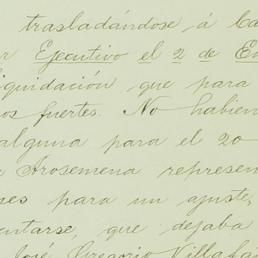 trasladándose, á Ca
r Ejecutivo el 2 de En
iquidación que para
os fuertes. No habien
alguna para el 20
a Arosemena represen
nes para un ajuste,
entarse, que dejaba
José Gregorio Villafa